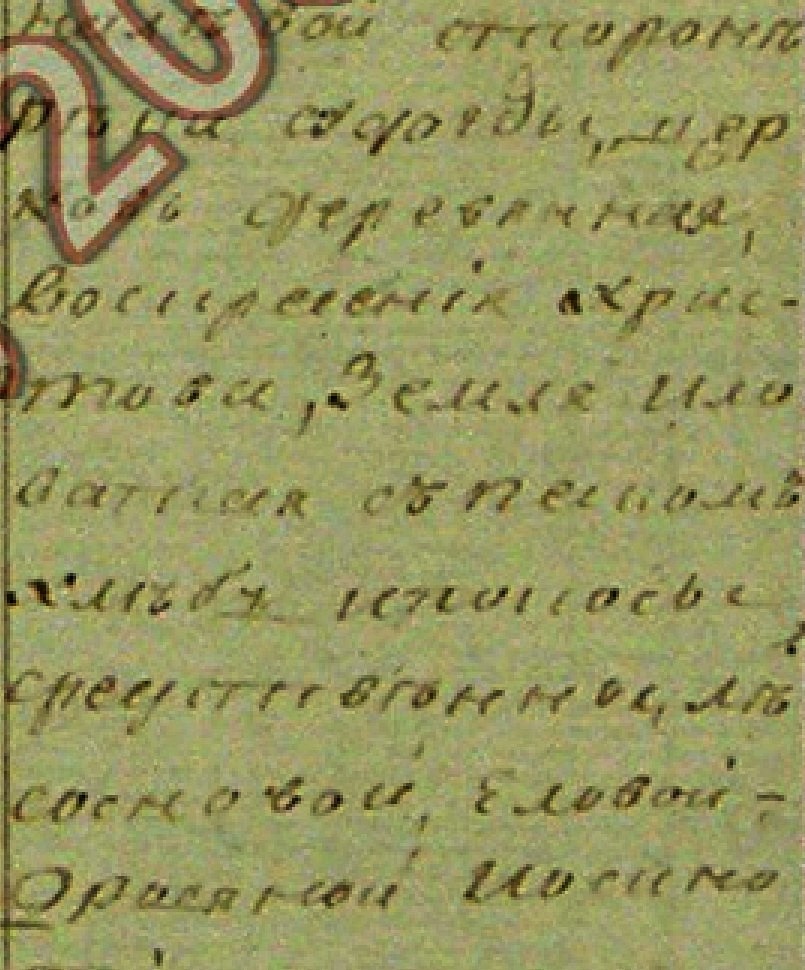 20
сторонѣ
рѣки суходы, цер
ковь деревянная,
воскресенія Хрис-
това, Земля Ило
ватная съ пескомъ
хлѣбъ ипокосы
средственны, лѣ
сосновой, Еловой -
Орясяной Иосино